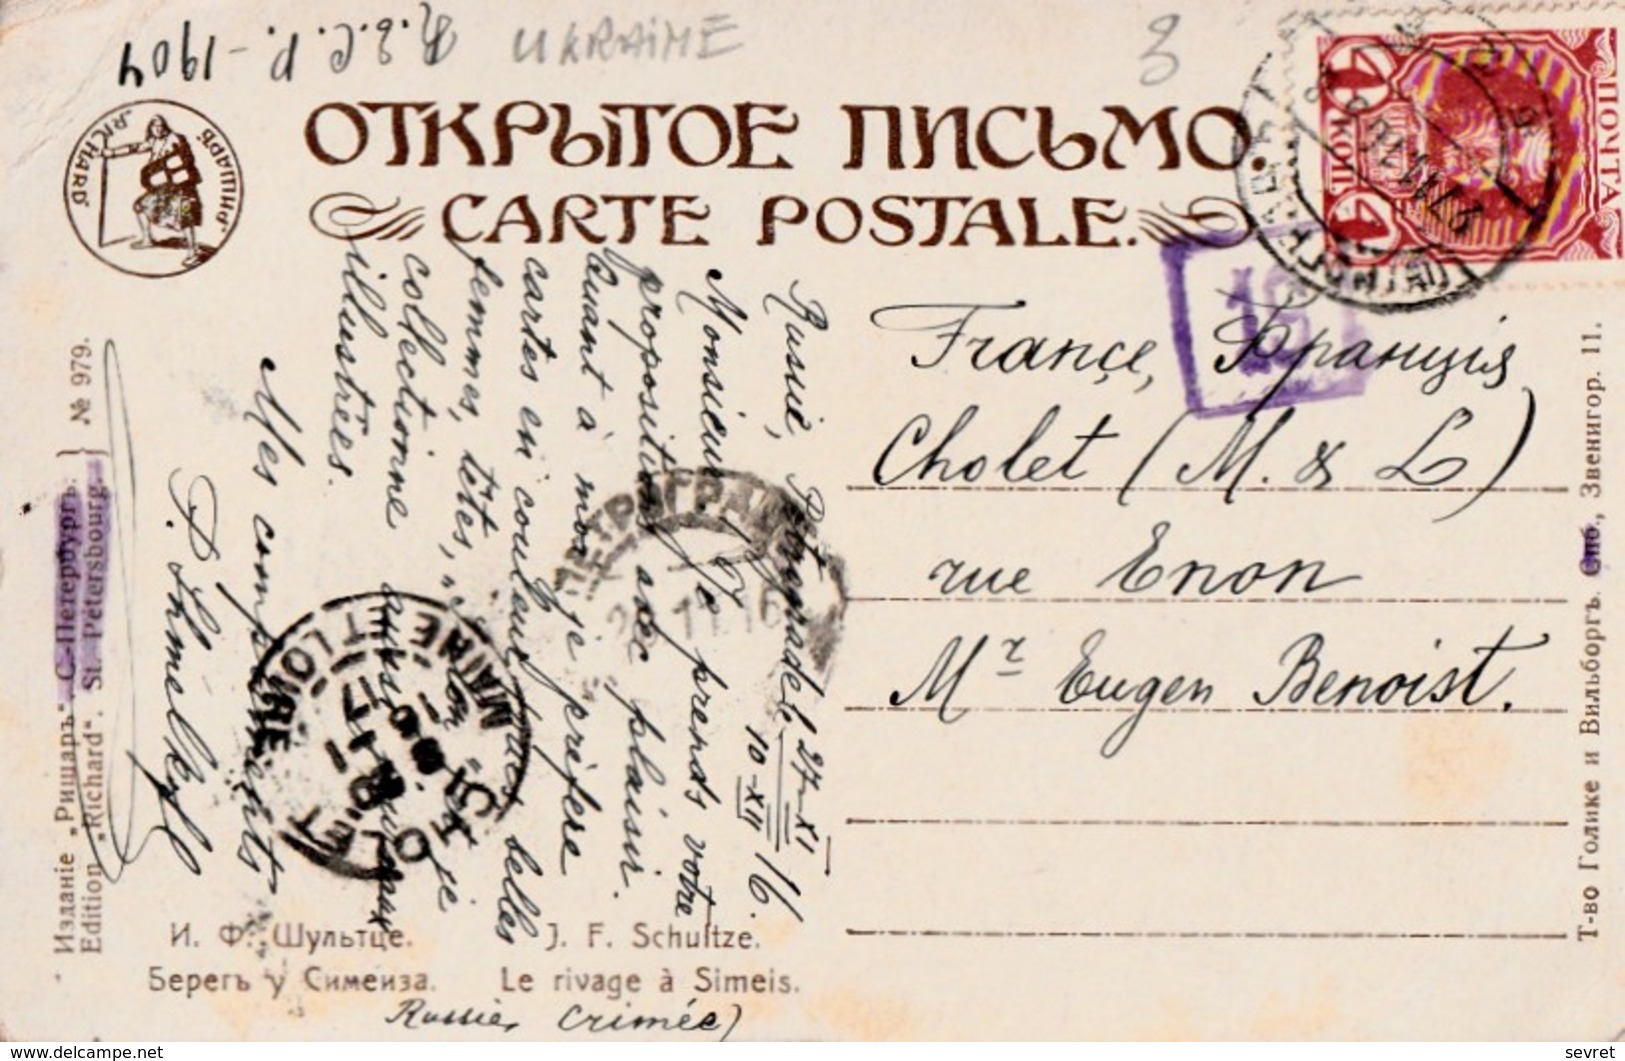 R.S.C.P. - 1904
UKRAINE
3
ОТКРЫТОЕ ПИСЬМО
CARTE POSTALE.
РИШАРЪ
"RICHARD"
ПОЧТА
4 КОП. 4
27 11 16
Russie, Petrograde, 27–XI
10–XII 16.
Monsieur, Je prends votre
proposition avec plaisir.
Quant à moi je préfère
cartes en couleur, belles
femmes, têtes,
collectionne aussi
illustrées.
Mes compliments
ПЕТРОГРАДЪ
11.16
CHOLET
MAINE ET LOIRE
17
France, Франція
Cholet (M. & L)
rue Enon
Mr Eugen Benoist.
Изданіе „Ришаръ“. С.-Петербургъ.
Edition „Richard“. St. Pétersbourg. } № 979.
И. Ф. Шультце. J. F. Schultze.
Берегъ у Симеиза. Le rivage à Simeis.
Russie, Crimée)
Т-во Голике и Вильборгъ. Спб., Звенигор. 11.
delcampe.net
sevret